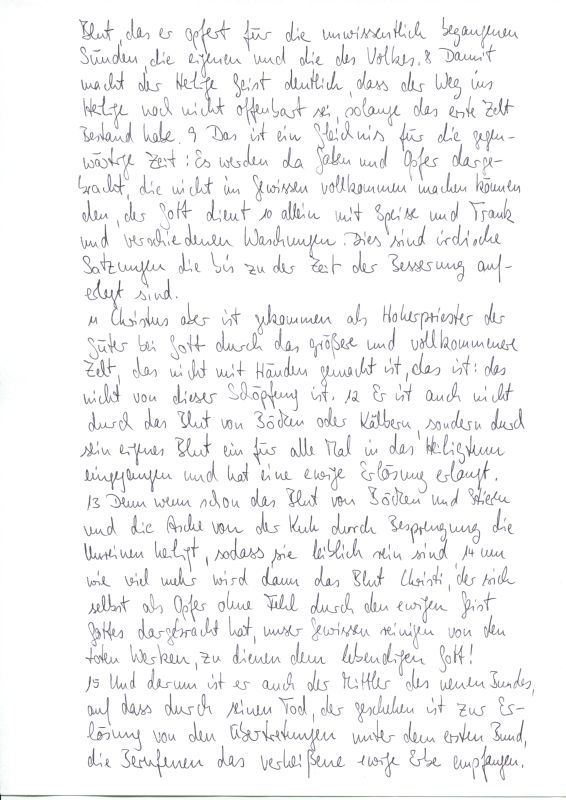 Blut, das er opfert für die unwissentlich begangenen
Sünden, die eigenen und die des Volkes. 8 Damit
macht der Heilige Geist deutlich, dass der Weg ins
Heilige noch nicht offenbart sei, solange das erste Zelt
Bestand habe. 9 Das ist ein Gleichnis für die gegen-
wärtige Zeit: Es werden da Gaben und Opfer darge-
bracht, die nicht im Gewissen vollkommen machen können
den, der Gott dient 10 allein mit Speise und Trank
und verschiedenen Waschungen. Dies sind irdische
Satzungen die bis zu der Zeit der Besserung auf-
erlegt sind.
11 Christus aber ist gekommen als Hoherpriester der
Güter bei Gott durch das größere und vollkommenere
Zelt, das nicht mit Händen gemacht ist, das ist: das
nicht von dieser Schöpfung ist. 12 Er ist auch nicht
durch das Blut von Böcken oder Kälbern, sondern durch
sein eigenes Blut ein für alle Mal in das Heiligtum
eingegangen und hat eine ewige Erlösung erlangt.
13 Denn wenn schon das Blut von Böcken und Stieren
und die Asche von der Kuh durch Besprengung die
Unreinen heiligt, sodass sie leiblich rein sind 14 um
wie viel mehr wird dann das Blut Christi, der sich
selbst als Opfer ohne Fehl durch den ewigen Geist
Gottes dargebracht hat, unser Gewissen reinigen von den
toten Werken, zu dienen dem lebendigen Gott!
15 Und darum ist er auch der Mittler des neuen Bundes,
auf dass durch seinen Tod, der geschehen ist zur Er-
lösung von den Übertretungen unter dem ersten Bund,
die Berufenen das verheißene ewige Erbe empfangen.